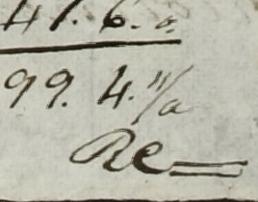 41. 6. 0.
99. 4. 11/2
Re